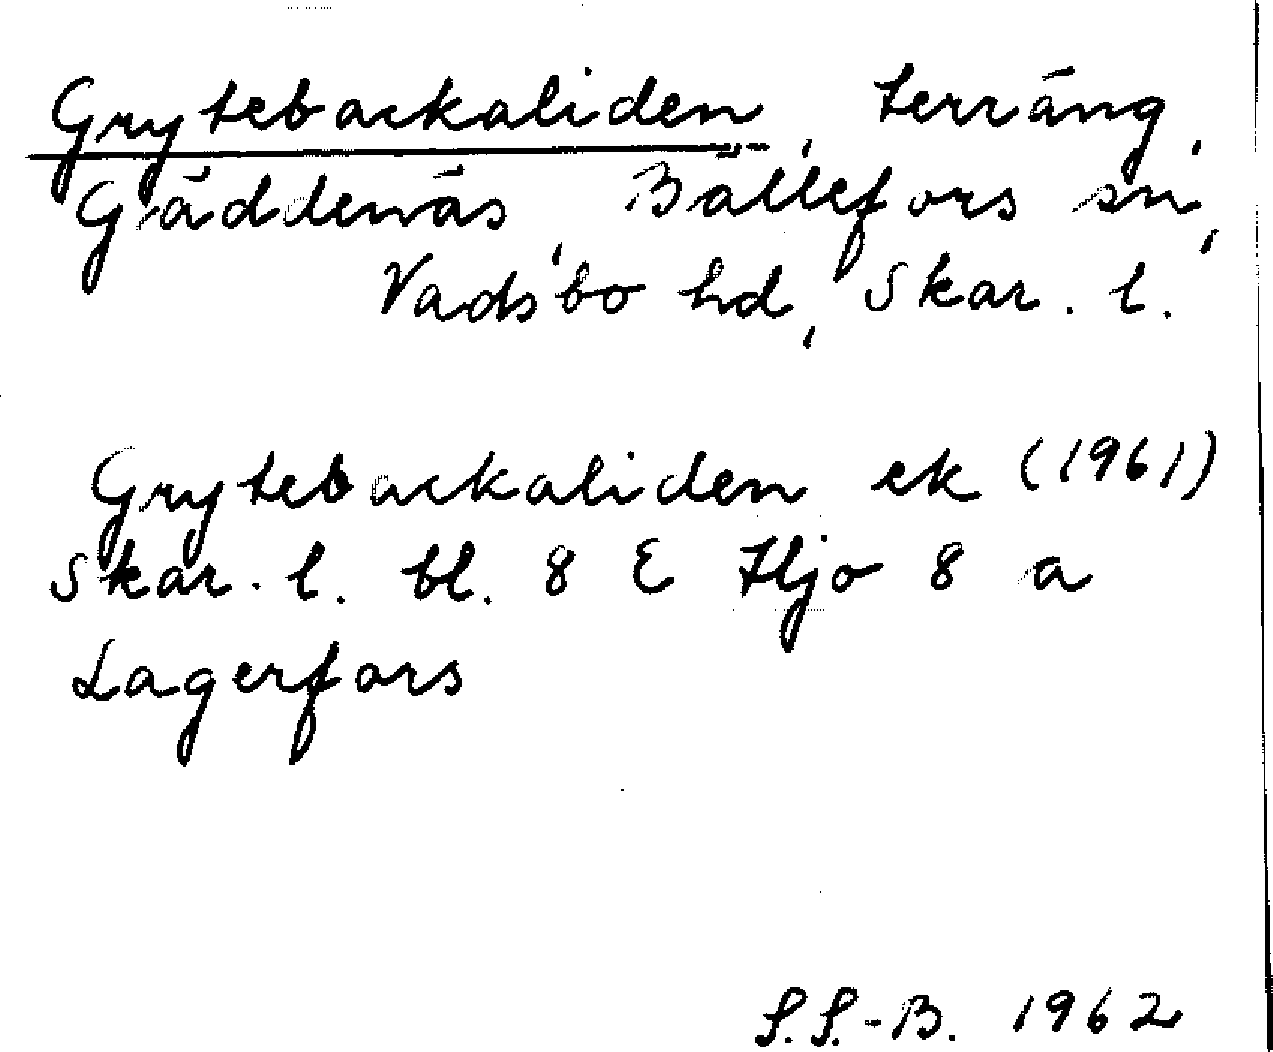 Grytebackaliden, terräng,
Gäddenäs, Bällefors sn,
Vadsbo hd, Skar. l.
Grytebackaliden ek (1961)
Skar. l. bl. 8 E Hjo 8 a
Lagerfors
S.S.-B. 1962